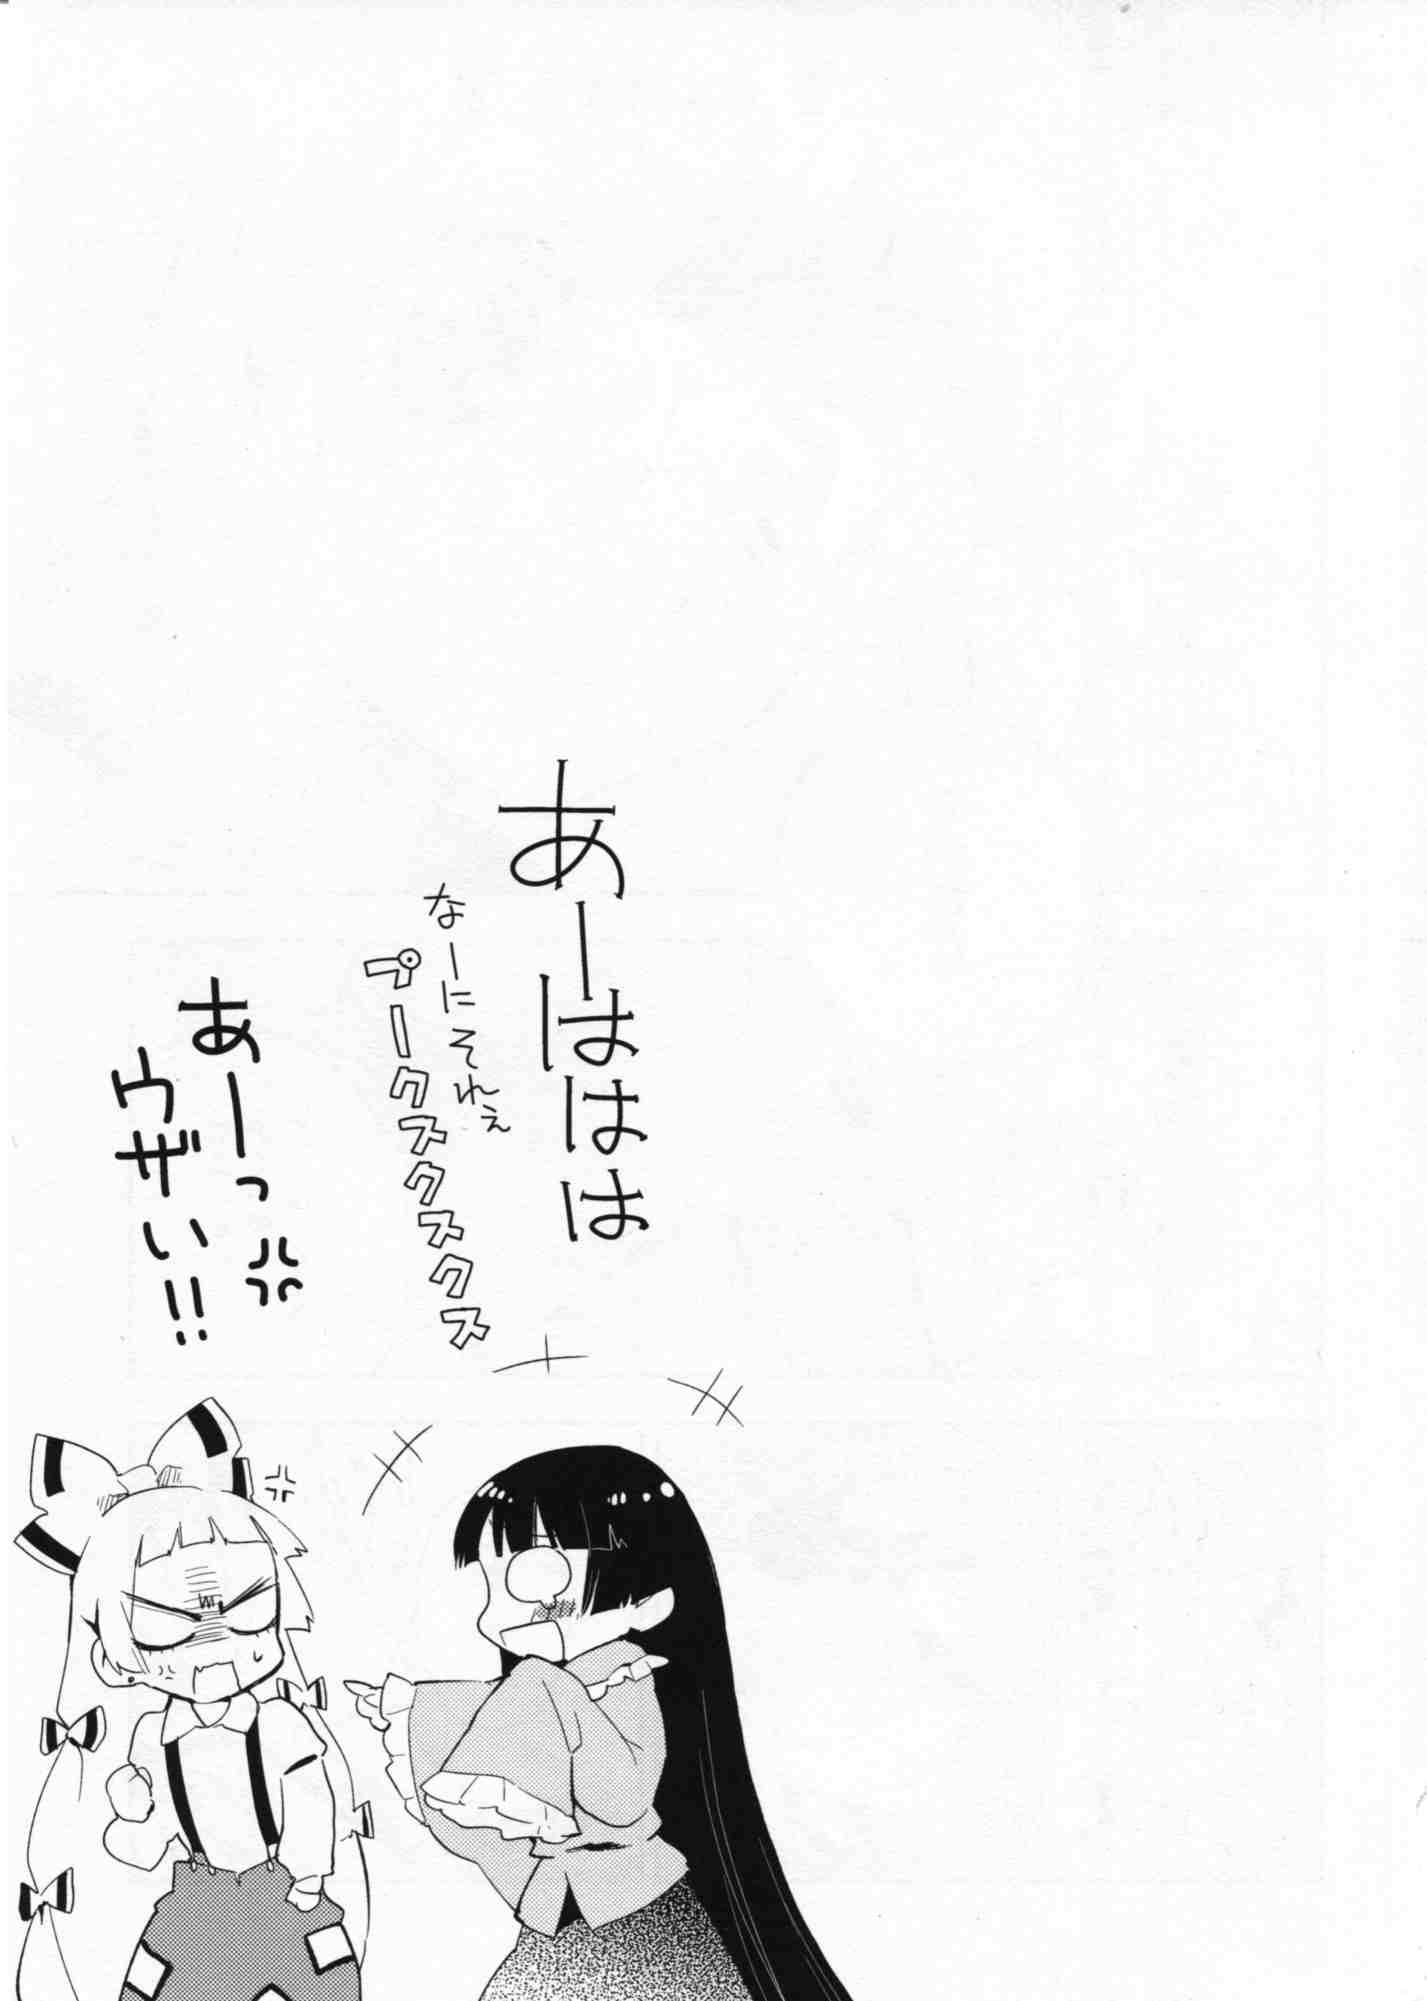 あーははは
なーにそれぇ
プークスクスクス
あーっ
ウザい!!